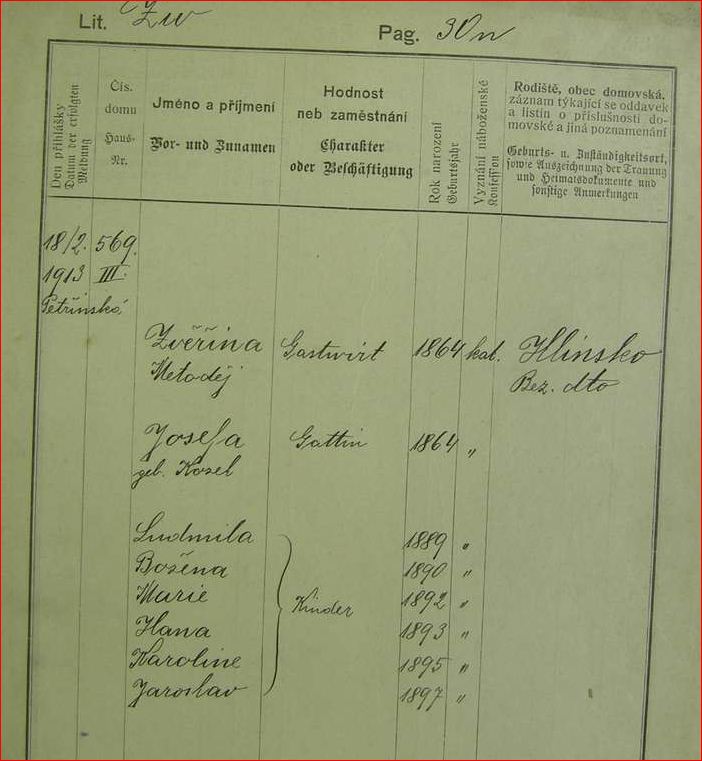 Lit. Zw
Pag. 30n
Den přihlášky
Datum der erfolgten
Meldung
Čís.
domu
Haus-
Nr.
Jméno a příjmení
Vor- und Zunamen
Hodnost
neb zaměstnání
Charakter
oder Beschäftigung
Rok narození
Geburtsjahr
Vyznání náboženské
Konfession
Rodiště, obec domovská,
záznam týkající se oddavek
a listin o příslušnosti do-
movské a jiná poznamenání
Geburts- u. Zuständigkeitsort,
sowie Auszeichnung der Trauung
und Heimatsdokumente und
sonstige Anmerkungen
18/2. 569.
1913 III.
Petřinská
Zvěřina Gastwirt 1864 kat. Hlinsko
Metoděj Bez. dto
Josefa Gattin 1864 "
geb. Kosel
Ludmila 1889 "
Božena 1890 "
Marie Kinder 1892 "
Hana 1893 "
Karoline 1895 "
Jaroslav 1897 "